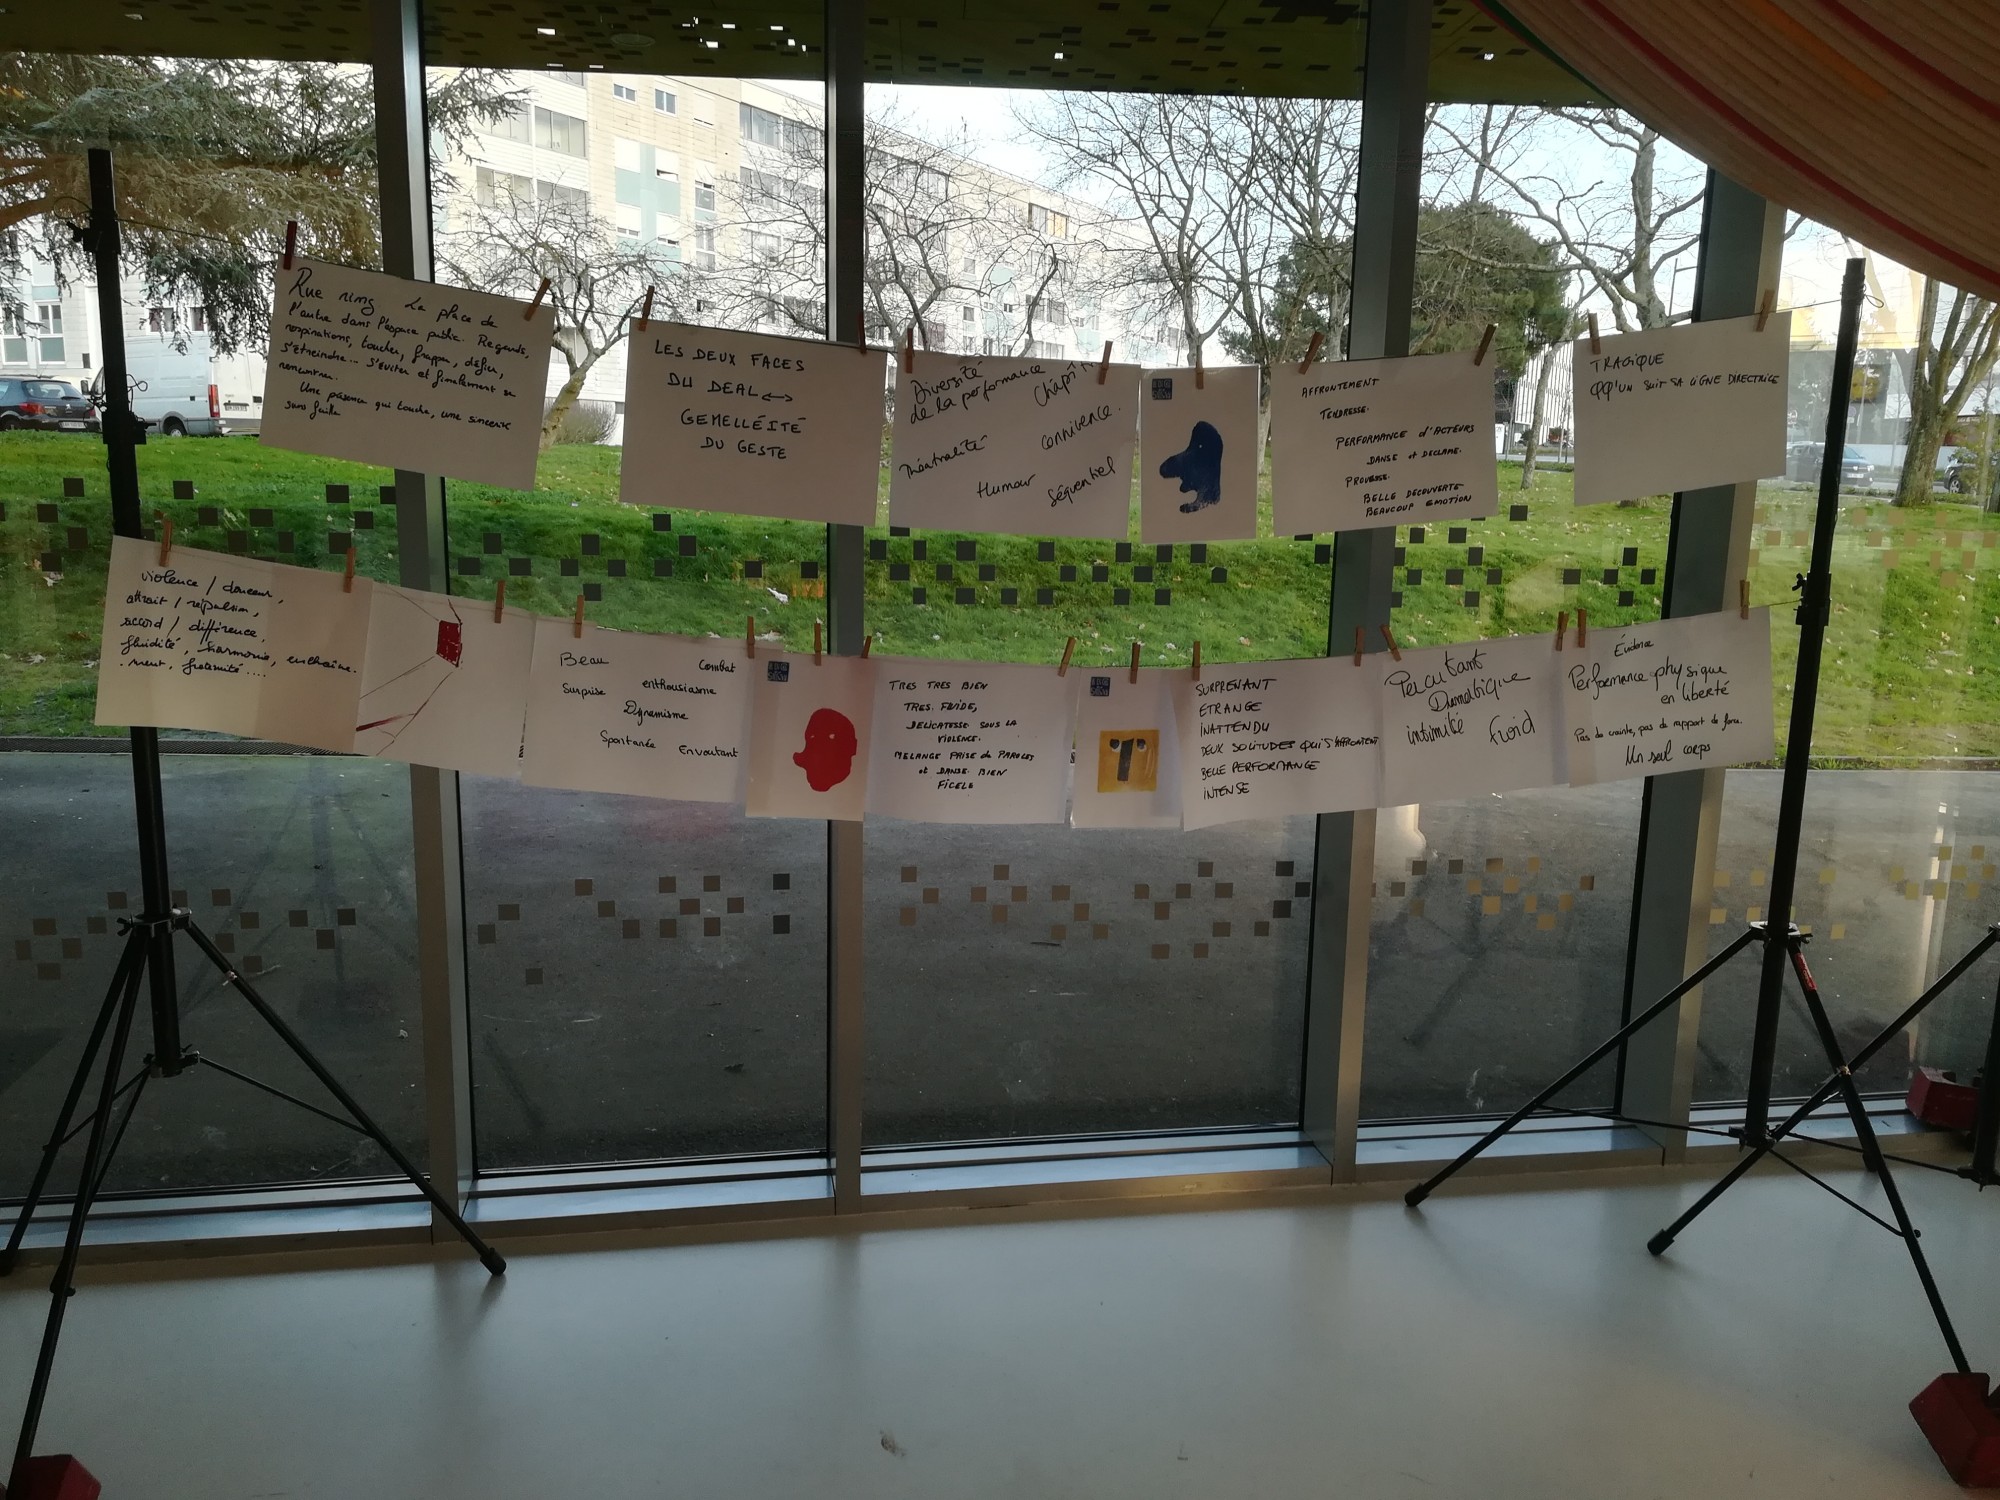 Rue ring La place de
l'autre dans l'espace public. Regards,
respirations, toucher, frapper, défier,
s'étreindre... s'éviter et finalement se
rencontrer.
Une présence qui touche, une sincérité
sans faille
LES DEUX FACES
DU DEAL ↔
GEMELLÉITÉ
DU GESTE
Diversité
de la performance
Théâtralité
connivence.
Humour
Séquentiel
AFFRONTEMENT
TENDRESSE.
PERFORMANCE d'ACTEURS
DANSE et DECLAME.
PROUESSE.
BELLE DECOUVERTE
BEAUCOUP EMOTION
TRAGIQUE
QQ'UN SUIT SA LIGNE DIRECTRICE
violence / douceur,
attrait / répulsion,
accord / différence,
fluidité, harmonie, enchaîne-
-ment, fraternité....
Beau Combat
Surprise enthousiasme
Dynamisme
Spontanée Envoutant
TRES TRES BIEN
TRES. FLUIDE,
DELICATESSE SOUS LA
VIOLENCE.
MELANGE PRISE de PAROLES
et DANSE BIEN
FICELE
SURPRENANT
ETRANGE
INATTENDU
DEUX SOLITUDES QUI S'AFFRONTENT
BELLE PERFORMANCE
INTENSE
Percutant
Dramatique
intimité Froid
Évidence
Performance physique
en liberté
Pas de crainte, pas de rapport de force.
Un seul corps